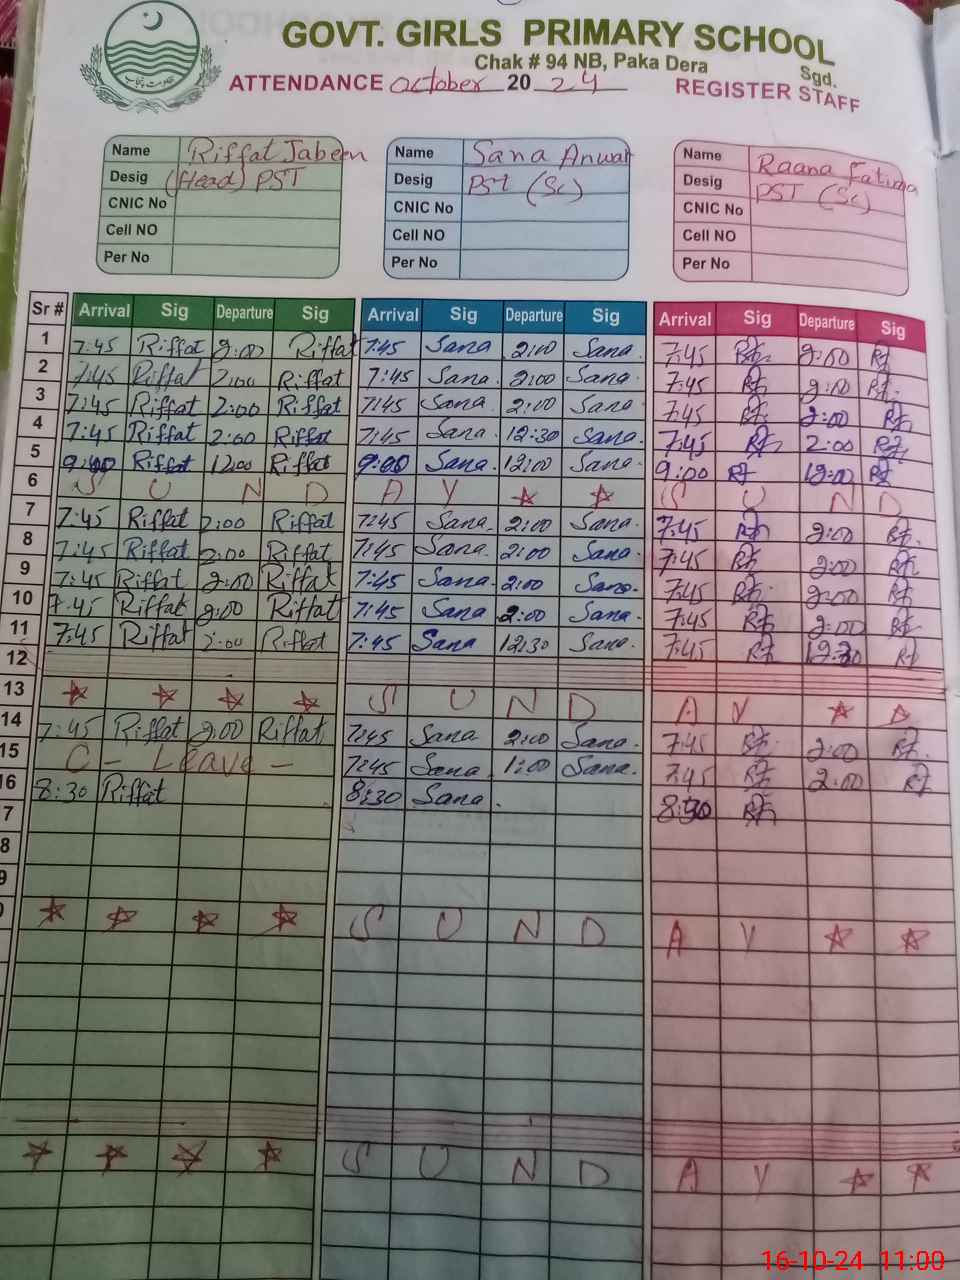 GOVT. GIRLS PRIMARY SCHOOL
Chak # 94 NB, Paka Dera Sgd.
ATTENDANCE October 20 24 REGISTER STAFF
Name Riffat Jabeen Name Sana Anwar Name Raana Fatima
Desig (Head) PST Desig PST (Sc) Desig PST (Sc)
CNIC No CNIC No CNIC No
Cell NO Cell NO Cell NO
Per No Per No Per No
Sr # Arrival Sig Departure Sig Arrival Sig Departure Sig Arrival Sig Departure Sig
1 7:45 Riffat 2:00 Riffat 7:45 Sana 2:00 Sana. 7:45 Rf 2:00 Rf
2 7:45 Riffat 2:00 Riffat 7:45 Sana. 2:00 Sana. 7:45 Rf 2:00 Rf.
3 7:45 Riffat 2:00 Riffat 7:45 Sana. 2:00 Sana. 7:45 Rf. 2:00 Rf
4 7:45 Riffat 2:00 Riffat 7:45 Sana. 12:30 Sana. 7:45 Rf 2:00 Rf
5 9:00 Riffat 12:00 Riffat 9:00 Sana. 12:00 Sana. 9:00 Rf 12:00 Rf
6 S U N D A Y S U N D
7 7:45 Riffat 2:00 Riffat 7:45 Sana. 2:00 Sana. 7:45 Rf 2:00 Rf.
8 7:45 Riffat 2:00 Riffat 7:45 Sana. 2:00 Sana. 7:45 Rf 2:00 Rf
9 7:45 Riffat 2:00 Riffat 7:45 Sana. 2:00 Sana. 7:45 Rf. 2:00 Rf
10 7:45 Riffat 2:00 Riffat 7:45 Sana. 2:00 Sana. 7:45 Rf 2:00 Rf
11 7:45 Riffat 2:00 Riffat 7:45 Sana 12:30 Sana. 7:45 Rf 12:30 Rf
12
13 S U N D A Y
14 7:45 Riffat 2:00 Riffat 7:45 Sana 2:00 Sana. 7:45 Rf 2:00 Rf.
15 C - Leave - 7:45 Sana. 1:00 Sana. 7:45 Rf 2:00 Rf
16 8:30 Riffat 8:30 Sana. 8:30 Rf
7
8
9
S U N D A Y
S U N D A Y
16-10-24 11:00